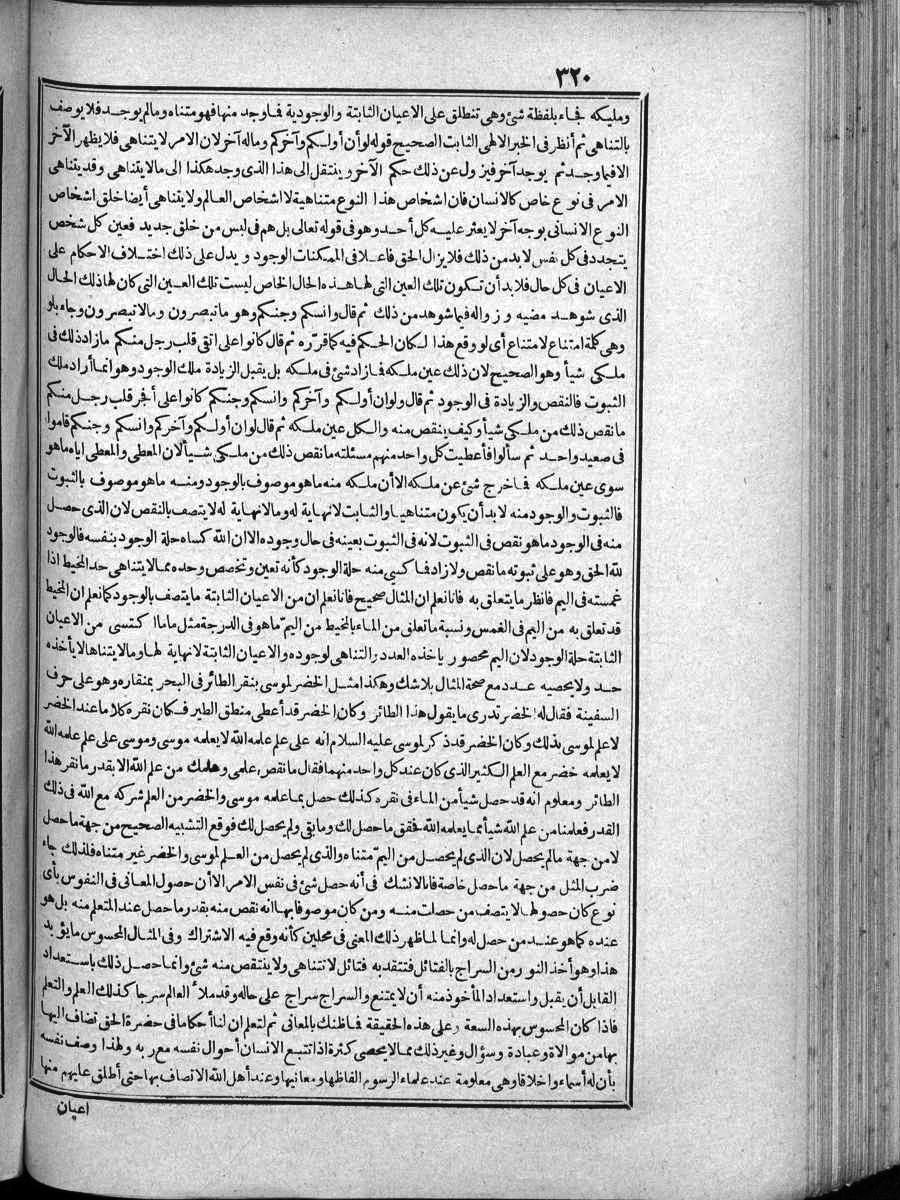 ٣٢٠
ومليكه فجاء بلفظة شئ وهى تنطلق على الاعيان الثابتة والوجودية فما وجد منها فهو متناه ومالم يوجد فلا يوصف
بالتناهى ثم أنظر فى الخبر الالهى الثابت الصحيح قوله لوأن أولكم وآخركم وماله آخر لان الامر لا يتناهى فلا يظهر الآخر
الافيما وجد ثم يوجد آخر فيزول عن ذلك حكم الآخر وينتقل الى هذا الذى وجد هكذا الى مالا يتناهى وقد يتناهى
الامر فى نوع خاص كالانسان فان اشخاص هذا النوع متناهية لا اشخاص العالم ولا يتناهى أيضا خلق اشخاص
النوع الانسانى بوجه آخر لا يعثر عليه كل أحد وهو فى قوله تعالى بل هم فى لبس من خلق جديد فعين كل شخص
يتجدد فى كل نفس لابد من ذلك فلا يزال الحق فاعلا فى الممكنات الوجود ويدل على ذلك اختلاف الاحكام على
الاعيان فى كل حال فلا بد أن تكون تلك العين التى لها هذه الحال الخاص ليست تلك العين التى كان لها ذلك الحال
الذى شوهد مضيه وزواله فيما شوهد من ذلك ثم قال وانسكم وجنكم وهو ما تبصرون ومالا تبصرون وجاء بلو
وهى كلمة امتناع لامتناع أى لو وقع هذا لكان الحكم فيه كما قرّره ثم قال كانوا على اتقى قلب رجل منكم ما زاد ذلك فى
ملكى شيأ وهو الصحيح لان ذلك عين ملكه فما زاد شئ فى ملكه بل يقبل الزيادة ملك الوجود وهو انما أراد ملك
الثبوت فالنقص والزيادة فى الوجود ثم قال ولوان أولكم وآخركم وانسكم وجنكم كانوا على أفجر قلب رجل منكم
ما نقص ذلك من ملكى شيأ وكيف ينقص منه والكل عين ملكه ثم قال لوان أولكم وآخركم وانسكم وجنكم قاموا
فى صعيد واحد ثم سألوا فأعطيت كل واحد منهم مسئلته ما نقص ذلك من ملكى شيأ لان المعطى والمعطى اياه ما هو
سوى عين ملكه فما خرج شئ عن ملكه الا أن ملكه منه ما هو موصوف بالوجود ومنه ما هو موصوف بالثبوت
فالثبوت والوجود منه لابد أن يكون متناهيا والثابت لا نهاية له ومالا نهاية له لا يتصف بالنقص لان الذى حصل
منه فى الوجود ما هو نقص فى الثبوت لانه فى الثبوت بعينه فى حال وجوده الا ان الله كساه حلة الوجود بنفسه فالوجود
لله الحق وهو على ثبوته ما نقص ولا زاد فما كسى منه حلة الوجود كأنه تعين وتخصص وحده مما لا يتناهى حد المخيط اذا
غمسته فى اليم فانظر ما يتعلق به فانا نعلم ان المثال صحيح فانا نعلم ان من الاعيان الثابتة ما يتصف بالوجود كما نعلم ان المخيط
قد تعلق به من اليم فى الغمس ونسبة ما تعلق من الماء بالمخيط من اليمّ ما هو فى الدرجة مثل ما اكتسى من الاعيان
الثابتة حلة الوجود لان اليم محصور ياخذه العدد والتناهى لوجوده والاعيان الثابتة لا نهاية لها ومالا يتناهى لا يأخذه
حد ولا يحصيه عدد مع صحة المثال بلا شك وهكذا مثل الخضر لموسى بنقر الطائر فى البحر بمنقاره وهو على حرف
السفينة فقال له الخضر تدرى ما يقول هذا الطائر وكان الخضر قد أعطى منطق الطير فكان نقره كلاما عند الخضر
لا علم لموسى بذلك وكان الخضر قد ذكر لموسى عليه السلام انه على علم علمه الله لا يعلمه موسى وموسى على علم علمه الله
لا يعلمه خضر مع العلم الكثير الذى كان عند كل واحد منهما فقال ما نقص علمى وعلمك من علم الله الا بقدر ما نقر هذا
الطائر ومعلوم انه قد حصل شيأ من الماء فى نقره كذلك حصل بما علمه موسى والخضر من العلم شركه مع الله فى ذلك
القدر فعلمنا من علم الله شيأ مما يعلمه الله فحقق ما حصل لك وما بقى ولم يحصل لك فوقع التشبيه الصحيح من جهة ما حصل
لا من جهة مالم يحصل لان الذى لم يحصل من اليمّ متناه والذى لم يحصل من العلم لموسى والخضر غير متناه فلذلك جاء
ضرب المثل من جهة ما حصل خاصة فانا لانشك فى أنه حصل شئ فى نفس الامر الا أن حصول المعانى فى النفوس بأى
نوع كان حصولها لا يتصف من حصلت منه ومن كان موصوفا بها انه نقص منه بقدر ما حصل عند المتعلم منه بل هو
عنده كما هو عند من حصل له وانما لما ظهر ذلك المعنى فى محلين كأنه وقع فيه الاشتراك وفى المثال المحسوس ما يؤيد
هذا وهو أخذ النور من السراج بالفتائل فتتقد به فتائل لا تتناهى ولا ينتقص منه شئ وانما حصل ذلك باستعداد
القابل أن يقبل واستعداد المأخوذ منه أن لا يمتنع والسراج سراج على حاله وقد ملأ العالم سرجا كذلك العلم والتعلم
فاذا كان المحسوس بهذه السعة وعلى هذه الحقيقة فما ظنك بالمعانى ثم لتعلم ان لنا أحكاما فى حضرة الحق تضاف اليها
بها من موالاة وعبادة وسؤال وغير ذلك مما لا يحصى كثرة اذا تتبع الانسان أحوال نفسه مع ربه ولهذا وصف نفسه
بأن له أسماء واخلاقا وهى معلومة عند علماء الرسوم الفاظها ومعانيها وعند أهل الله الاتصاف بها حتى أطلق عليهم منها
اعيان